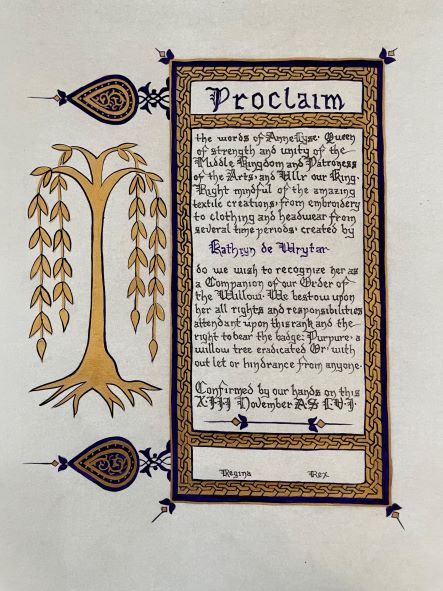 Proclaim
the words of AnneLyse· Queen
of strength and unity of the
Middle Kingdom and Patroness
of the Arts· and Ullr our King·
Right mindful of the amazing
textile creations, from embroidery
to clothing and headwear from
several time periods, created by
Kathryn de Wrytar
do we wish to recognize her as
a Companion of our Order of
the Willow· We bestow upon
her all rights and responsibilities
attendant upon this rank and the
right to bear the badge: Purpure, a
willow tree eradicated Or· with
out let or hindrance from anyone·
Confirmed by our hands on this
X·III November A·S L·V·I
Regina Rex